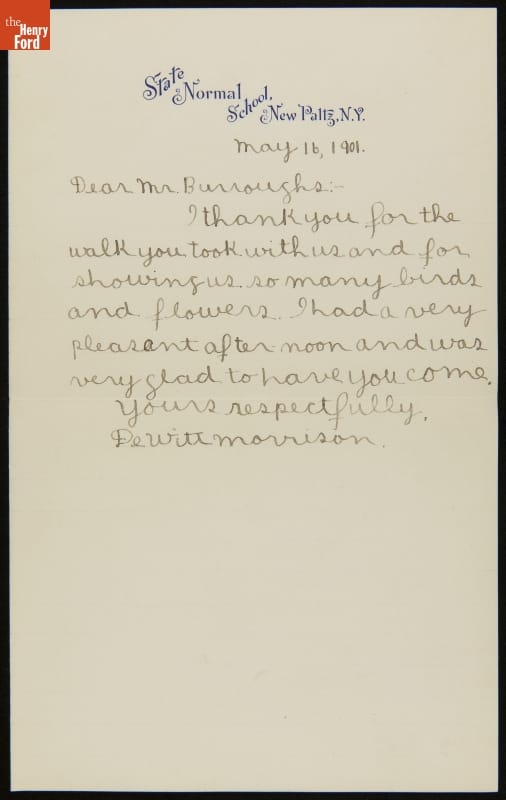 the
Henry
Ford
State Normal School, New Paltz, N.Y.
May 16, 1901.
Dear Mr. Burroughs:-
I thank you for the
walk you took with us and for
showing us so many birds
and flowers. I had a very
pleasant after-noon and was
very glad to have you come.
Yours respectfully,
DeWitt Morrison.